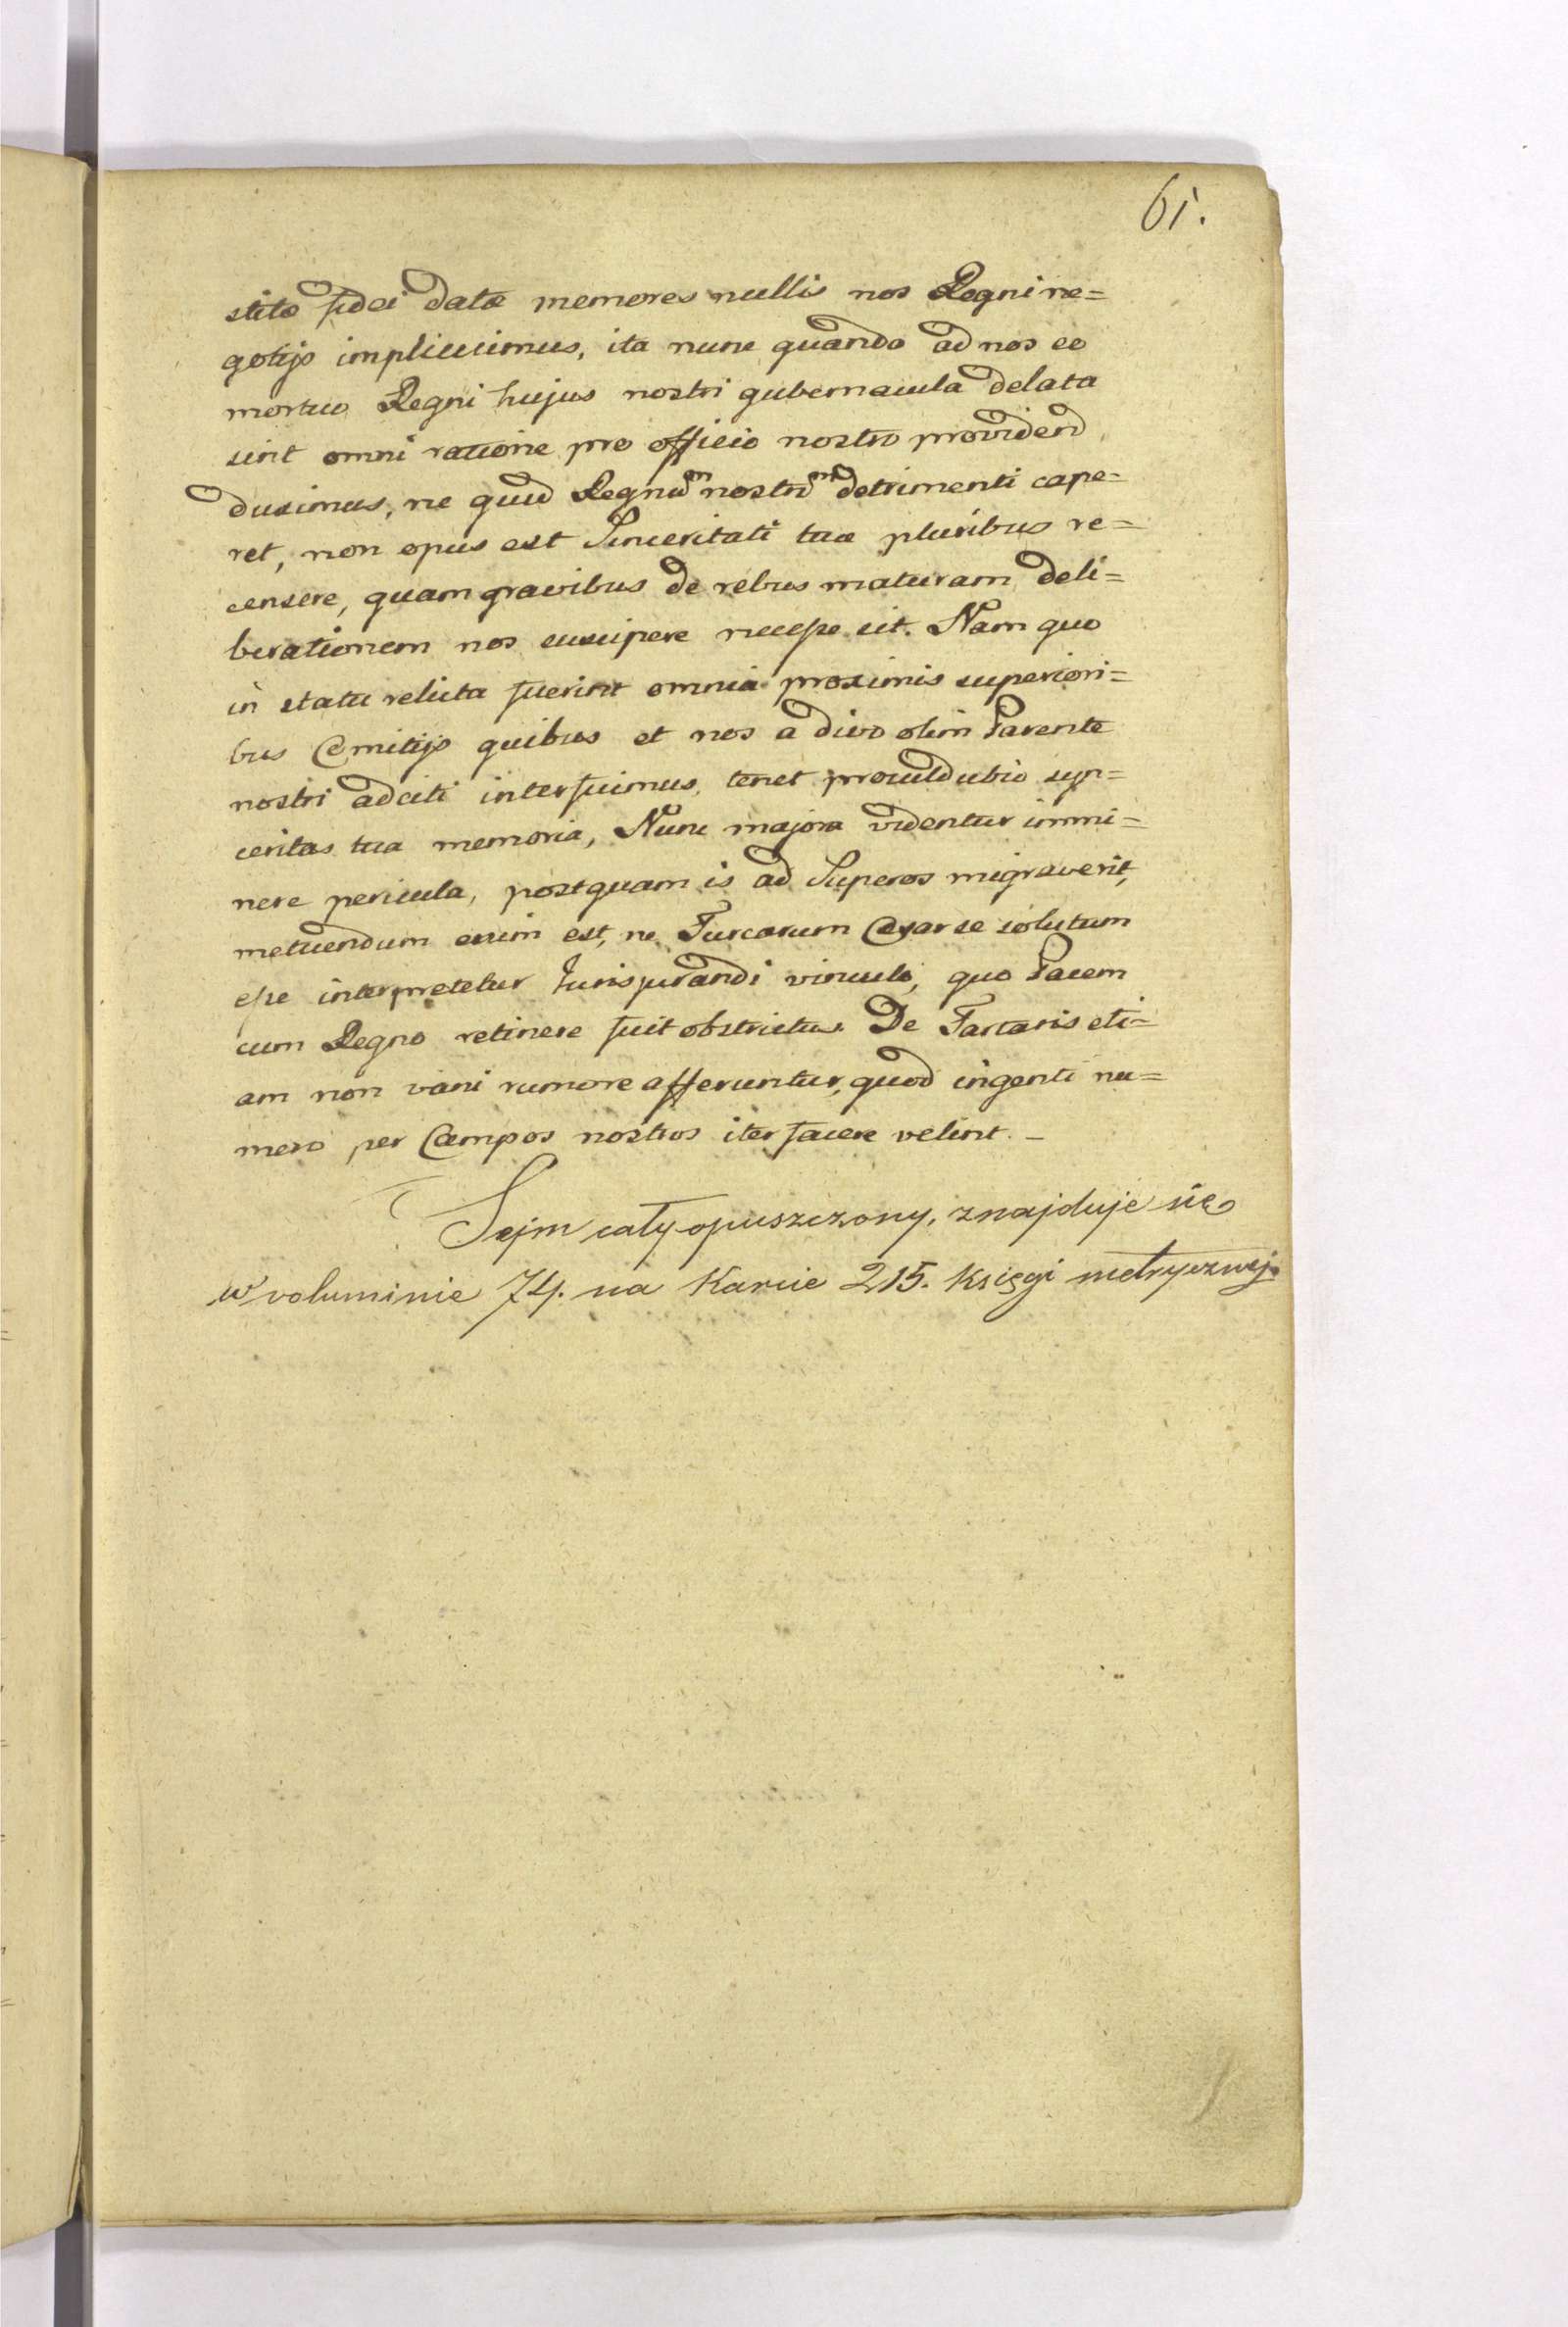 61.
stitæ fidei datæ memores nullis nos Regni ne=
gotijs implicuimus, ita nunc quando ad nos eo
mortuo Regni hujus nostri gubernacula delata
sint omni ratione pro officio nostro providend
duximus, ne quid Regnum nostrum detrimenti cape=
ret, non opus est Sinceritati tuæ pluribus re=
censere, quam gravibus de rebus maturam deli=
berationem nos suscipere necesse sit. Nam quo
in statu relicta fuerint omnia proximis superiori=
bus Comitijs quibus et nos a divo olim Parente
nostri adciti interfuimus, tenet proculdubio syn=
ceritas tua memoria, Nunc majora videntur immi=
nere pericula, postquam is ad Superos migraverit,
metuendum enim est, ne Turcarum Cæsar se solutum
esse interpretetur Jurisjurandi vinculo, quo Pacem
cum Regno retinere fuit obstrictus. De Tartaris eti=
am non vani rumore afferuntur, quod ingenti nu=
mero per Campos nostros iter facere velint. _
Sejm cały opuszczony, znajduje się
w voluminie 74. na Karcie 215. księgi metrycznej.